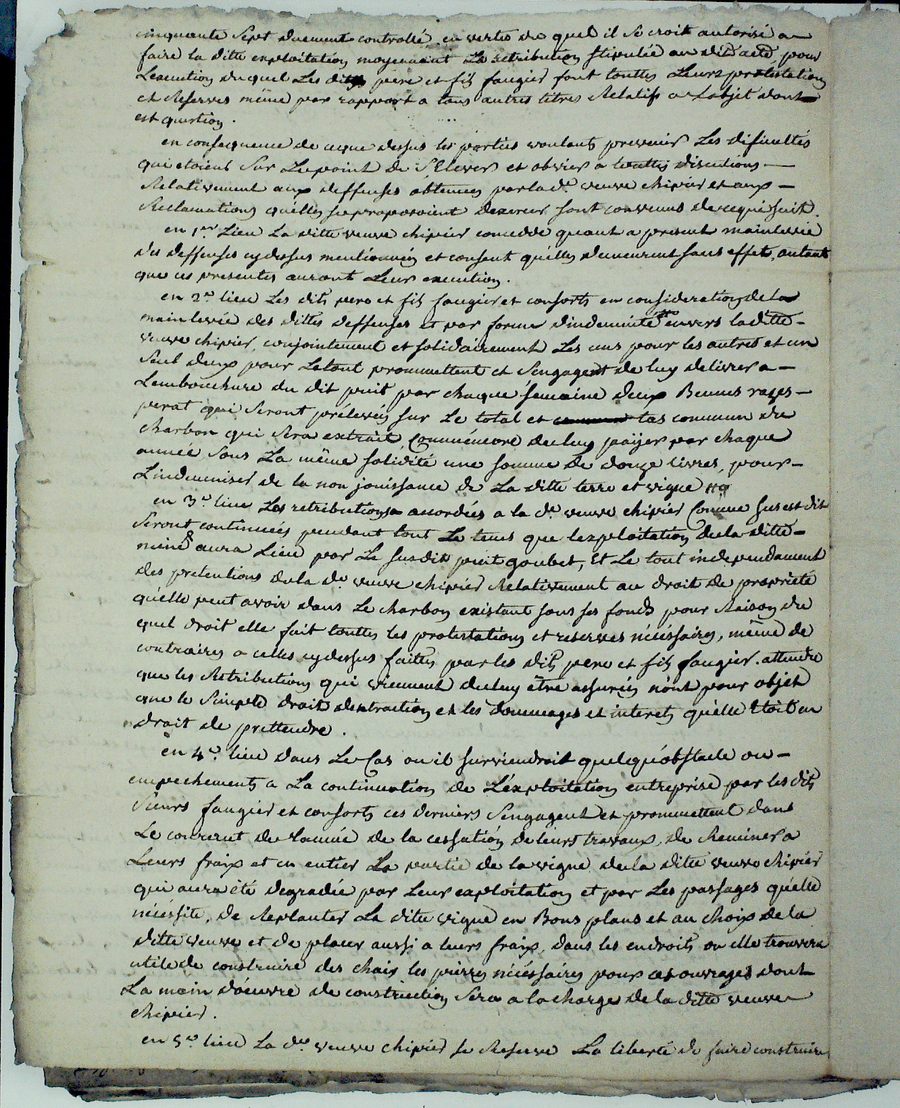 cinquante sept duement controllé, en vertu du quel il se croit autorisé a
faire la ditte exploitation moyennant La retribution stipulée au dit acte, pour
Lexecution duquel Les dits pere et fils faugier font touttes Leurs protestations
et Reserves même par rapport a tous autres titres Relatifs a Lobjet dont
est question.
en consequence de ce que dessus les parties voulants prevenir Les dificultés
qui etoient sur Le point de s'Elever et obvier a touttes discutions
Relativement aux deffenses obtenues par la de. veuve chipier et aux
Reclamations qu'elles se proposoient dexercer sont convenus de ce qui suit.
en 1er. Lieu La ditte veuve chipier concedde quant a present mainlevée
des deffenses cydessus mentionnées et consent qu'elles demeurent sans effets, autant
que ces presentes auront Leur execution.
en 2d. lieu Les dits pere et fils faugier et consorts en consideration de La
main levée des dittes deffenses et par forme d'indemnité envers la ditte
veuve chipier conjointement et solidairement Les uns pour les autres et un
seul deux pour Le tout promettent et s'engagent de luy delivrer a
Lembouchure du dit puit par chaque semaine deux Bennes razes
perat qui seront prelevées sur Le total et tas commun du
charbon qui sera extrait, Comme encore de luy païjer par chaque
année sous La même solidité une somme De douze livres, pour
Lindemniser de la non jouissance de La ditte terre et vigne
en 3e. lieu Les retributions accordées a la de. veuve chipier Comme sus est dit
seront continuées pendant tout Le tems que lexploitation de la ditte
mine aura Lieu par Le susdit puit goubet, Et Le tout independament
des pretentions de la de. veuve chipier Relativement au droit de propriété
qu'elle peut avoir dans Le charbon existant sous ses fonds pour Raison du
quel droit elle fait touttes les protestations et reserves nécessaires, même de
contraires a celles cydessus faittes par les dits pere et fils faugier. attendu
que les Retributions qui viennent de luy être assurées n'ont pour objet
que le Simple droit dextraction et les dommages et interets qu'elle Etoit en
droit de prettendre.
en 4e. lieu dans Le Cas ou il surviendroit quelqu'obstacle ou
empechements a La continuation de L'exploitation entreprise par les dits
Sieurs faugier et consorts ces derniers s'engagent et promettent dans
Le courrent de lannée de la cessation de leurs travaux, de Reminer a
Leurs fraix et en entier La partie de la vigne de la ditte veuve chipier
qui aura été degradée par Leur exploitation et par Les passages qu'elle
nécéssite, de Replanter La ditte vigne en Bons plans et au choix de la
ditte veuve et de placer aussi a leurs fraix dans les endroits ou elle trouvera
utile de construire des chais les pierres nécéssaires pour ces ouvrages dont
La main doeuvre de construction sera a la charge de la ditte veuve
chipier.
en 5e. lieu La de. veuve chipier se Reserve La liberté de faire construire